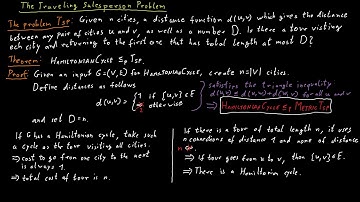 The Traveling Salesperson Problem
The problem TSP: Given n cities, a distance function d(u,v) which gives the distance
between any pair of cities u and v, as well as a number D. Is there a tour visiting
each city and returning to the first one that has total length at most D?
Theorem: HAMILTONIANCYCLE ≤p TSP.
Proof: Given an input G=(V,E) for HAMILTONIANCYCLE, create n=|V| cities.
Define distances as follows
d(u,v) = { 1 if {u,v}∈E
otherwise
and set D=n.
satisfies the triangle inequality
d(u,v) ≤ d(u,w)+d(w,v) for all u and v
⇒ HAMILTONIANCYCLE ≤p METRIC TSP
If G has a Hamiltonian cycle, take such
a cycle as the tour visiting all cities.
⇒ cost to go from one city to the next
is always 1.
⇒ total cost of tour is n.
If there is a tour of total length n, it uses
n connections of distance 1 and none of distance
⇒ If tour goes from u to v, then {u,v}∈E.
⇒ There is a Hamiltonian cycle.